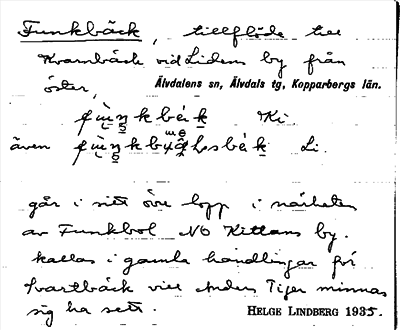 Funkbäck, tillflöde till
Kvarnbäck vid Lidens by från
öster,
Älvdalens sn, Älvdals tg, Kopparbergs län.
Ki.
även Li.
går i sitt övre lopp i närheten
av Funkbol NO Kittans by.
kallas i gamla handlingar för
Svartbäck vill Anders Tiger minnas
sig ha sett.
HELGE LINDBERG 1935.